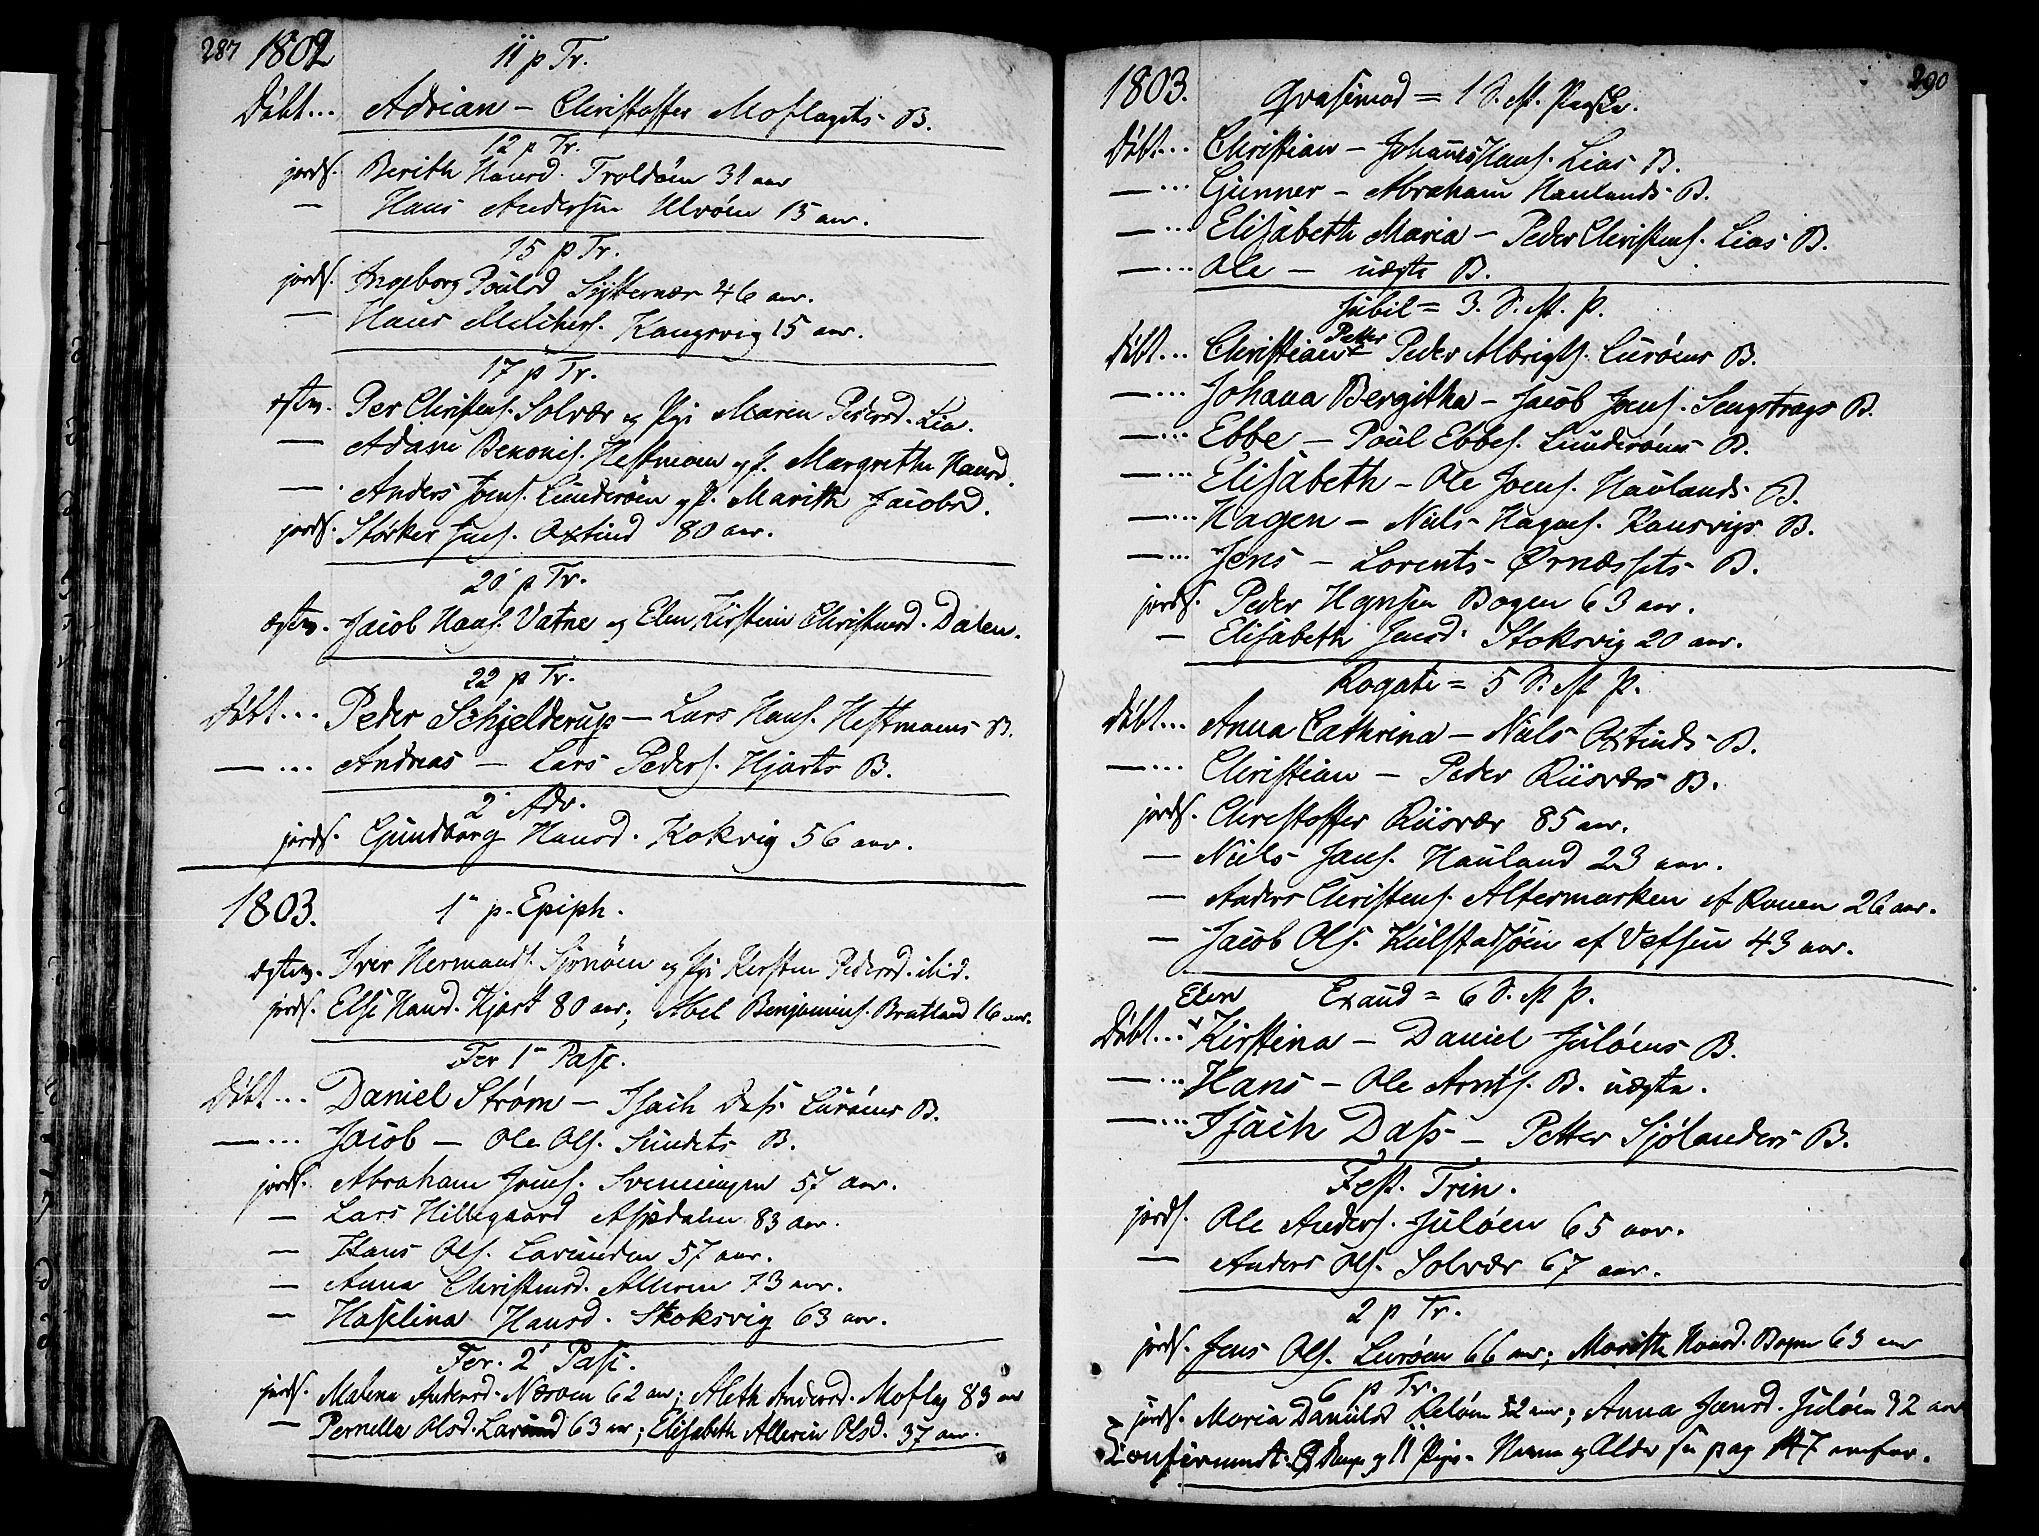 287 1802
11 p Tr.
Døbt... Adrian – Christoffer Moflagets B.
12 p Tr.
jords. Berith Hansd. Troldøen 31 aar
— Hans Andersen Ulvøen 15 aar.
15 p Tr.
jords. Ingeborg Poulsd 46 aar.
— Hans Kangsvig 15 aar.
17 p Tr.
Per Christens. Solvær og Pige Maren Pedersd. Lia.
— Adam Benonis. Hestmoen og P. Margrethe Hansd.
— Anders Jens. Lunderøen og P. Marith Jacobsd.
jords. Størker Jens. Oxtind 80 aar.
20 p Tr.
ægtev. Jacob Hans. Vatne og Elen Kirstina Christensd. Dalen.
22 p Tr.
Døbt... Peder Schjelderup – Lars Hans. Hestmoens B.
— ... Andreas – Lars Peders. Hjarts B.
2 Adv.
jords. Gundborg Hansd. Kokvig 56 aar.
1803. 1 p. Epiph.
ægtev. Iver Hermands. og Pige Kirsten Pedersd. ibid.
jords. Else Hansd. Hjart 80 aar; Abel Benjamins. Bratland 16 aar.
Fer 1 Pasc.
Døbt... Daniel Strøm – Isach Dass Lurøens B.
— ... Jacob – Ole Ols. Sundets B.
jords. Abraham Jens. Svenningen 57 aar.
— Lars Hillegaard Aspdalen 83 aar.
— Hans Ols. Lovunden 57 aar.
— Anna Christensd. Alleren 73 aar.
— Haselina Hansd. Stoksvig 63 aar.
Fer. 2 Pasc.
jords. Malena Andersd. Næsøen 62 aar; Aleth Andersd. Moflag 83 aar
— Pernella Olsd. Lavund 63 aar; Elisabeth Olsd. 37 aar.
290
1803. Qvasimod = 1 S. eft. Paaske.
Døbt... Christian – Johannes Hans. Lias B.
— ... Gunner – Abraham Haulands B.
— ... Elisabeth Maria – Peder Christens. Lias B.
— ... Ole – uægte B.
Jubil = 3. S. eft. P.
Petter
Døbt... Christian Peder Albrigts. Lurøens B.
— ... Johana Bergitha – Jacob Jens. B.
— ... Ebbe – Poul Ebbes. Lunderøens B.
— ... Elisabeth – Ole Jens. Haulands B.
— ... Hagen – Niels Hagens. Kansvigs B.
— ... Jens – Lorents Ørnæssets B.
jords. Peder Hansen Bogen 63 aar.
— Elisabeth Jensd. Stoksvig 20 aar.
Rogate = 5 S. eft P.
Døbt... Anna Cathrina – Niels Oxtinds B.
— ... Christian – Peder Riisværs B.
jords. Christoffer Riisvær 85 aar.
— Niels Jans. Hauland 23 aar.
— Anders Christens. Altermarken af Ranen 26 aar.
— Jacob Ols. Kulstadsøen af Vefsen 43 aar.
Elen Exaud = 6 S. eft P.
Døbt... Kirstina – Daniel Juløens B.
— ... Hans – Ole Arnts. B. uægte.
— ... Isach Dass – Petter Sjølanders B.
Fest. Trin.
jords. Ole Anders. Juløen 65 aar.
— Anders Ols. Solvær 67 aar.
2 p Tr.
jords. Jens Ols. Lurøen 66 aar; Marith Hansd. Bogen 63 aar
6 p Tr.
jords. Maria Danielsd 52 aar; Anna Jensd. Juløen 32 aar
Confirmert. 8 Drenge og 11 Piger. Navne og Alder see pag 147 anfør.